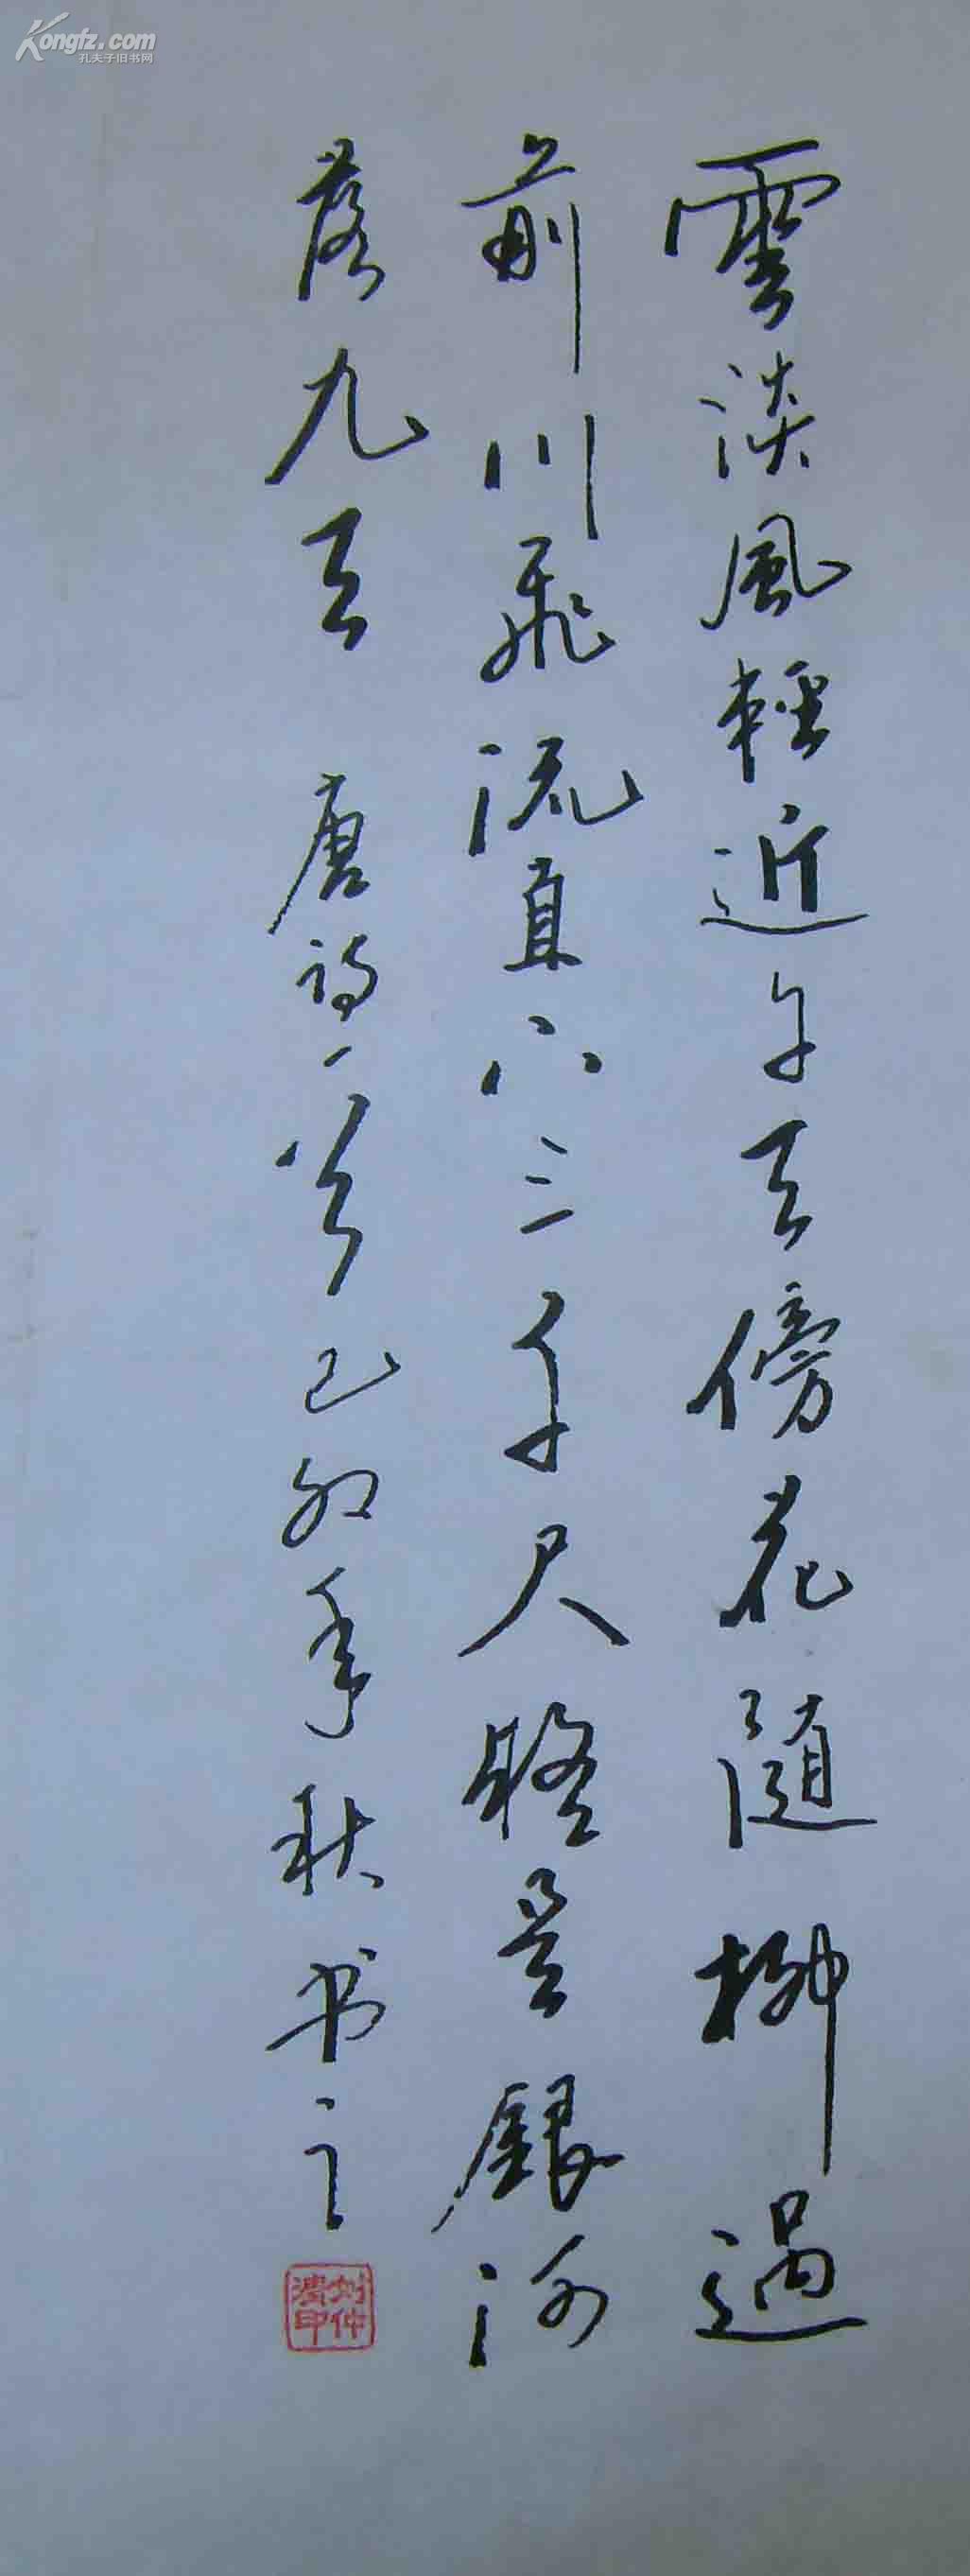 雲淡風輕近午天傍花随柳過
前川飛流直下三千尺疑是銀河
落九天 唐詩一首己卯年秋书之
Kongfz.com
孔夫子旧书网